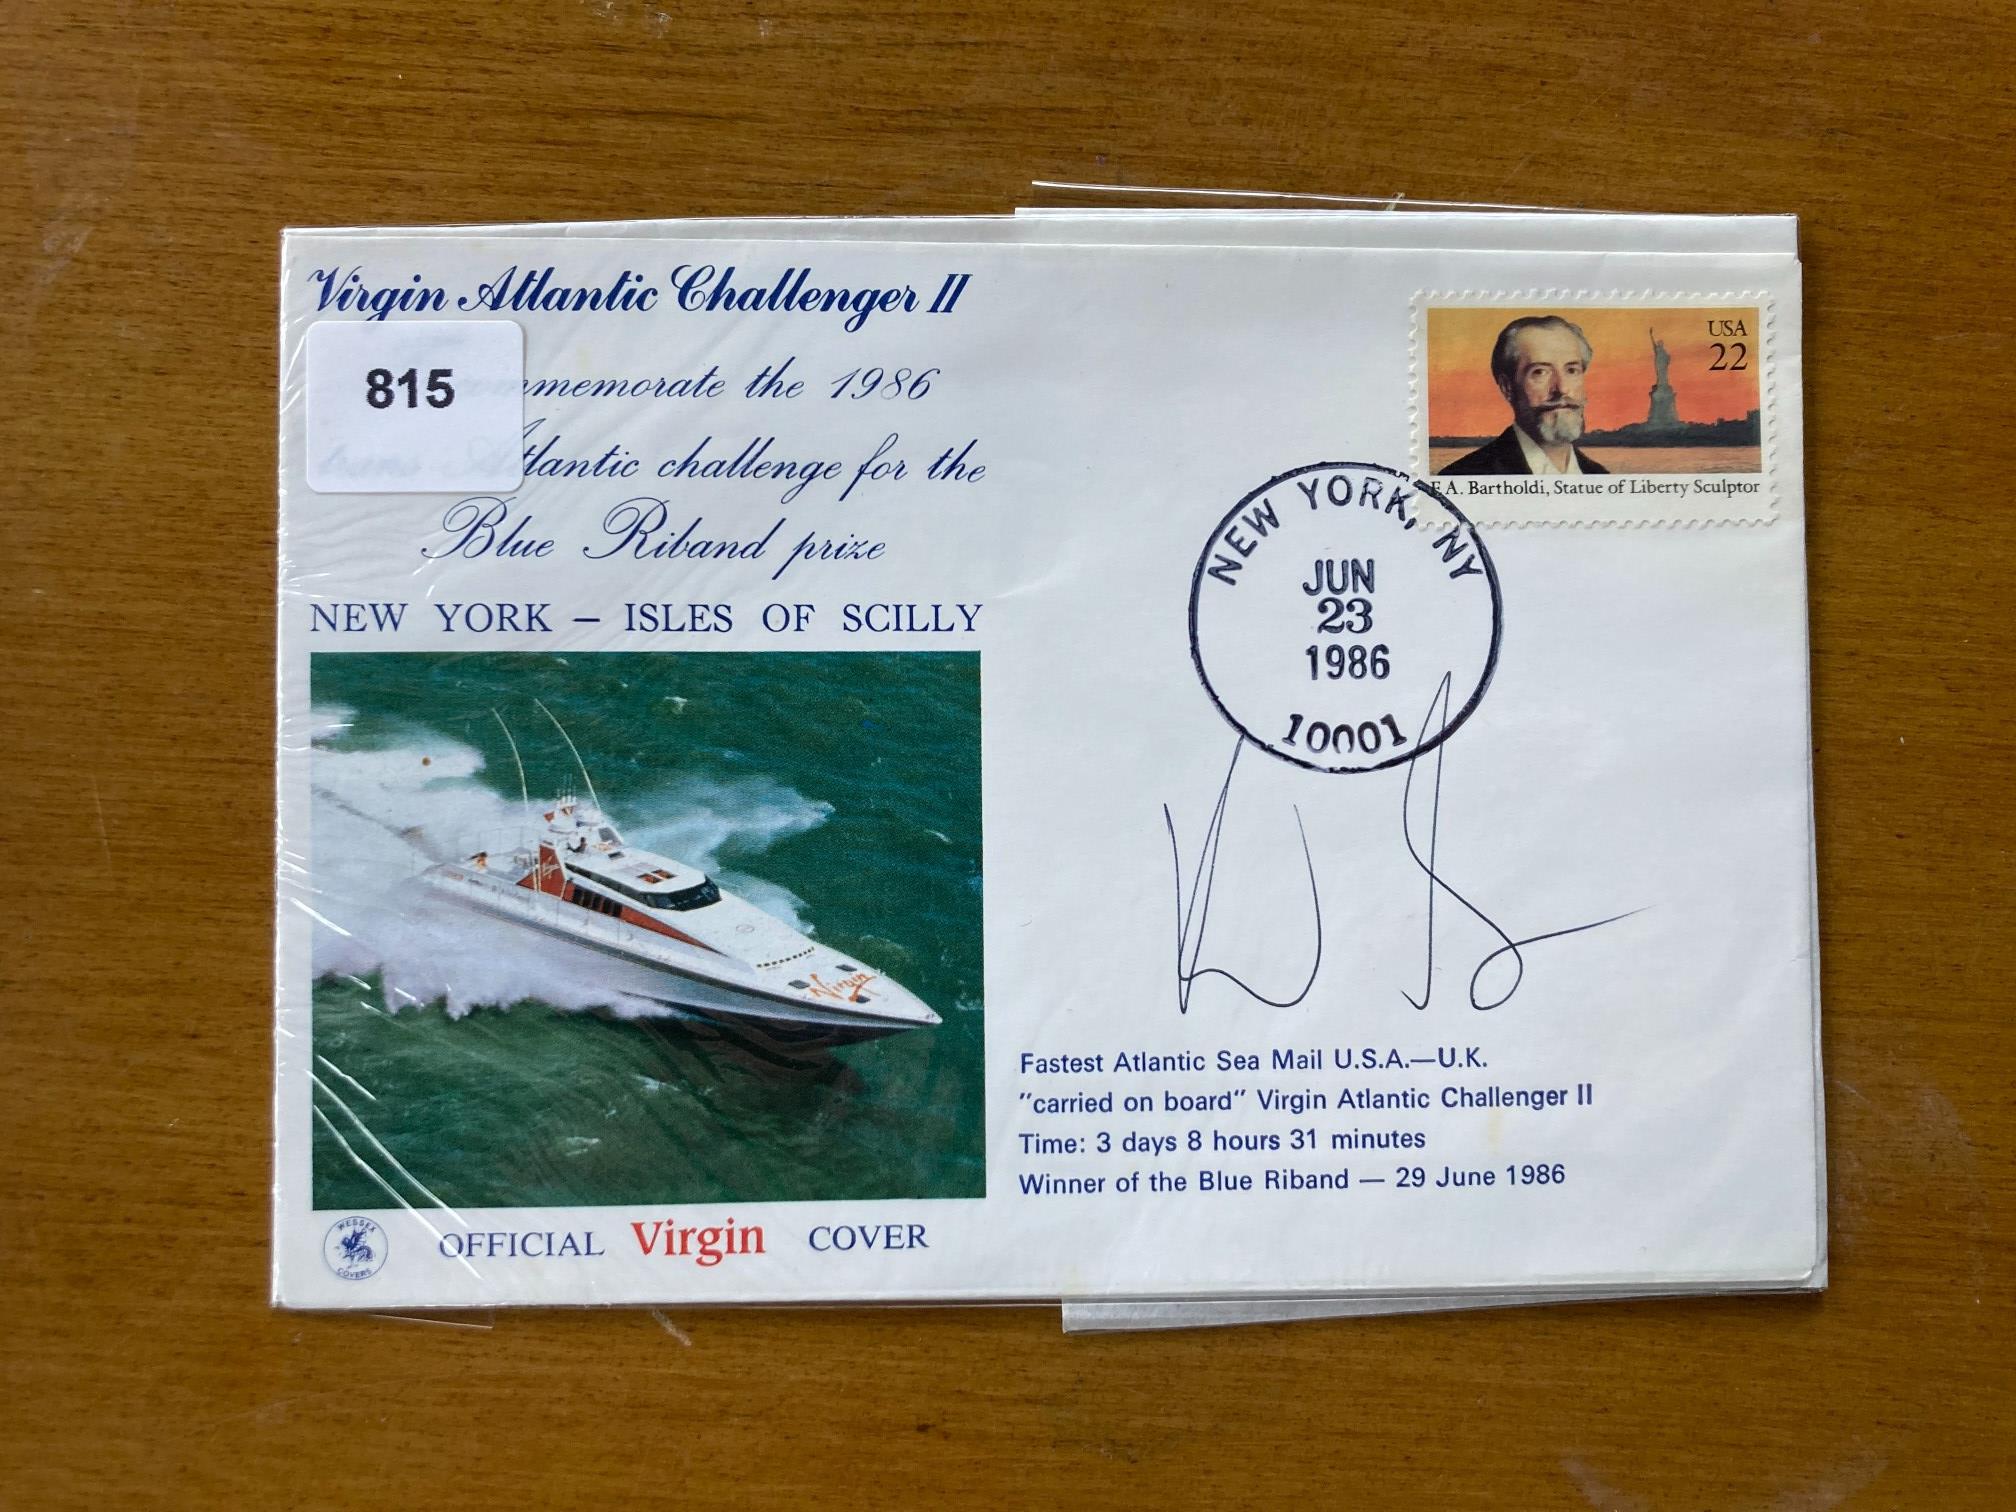 Virgin Atlantic Challenger II
815
ommemorate the 1986
trans Atlantic challenge for the
Blue Riband prize
NEW YORK – ISLES OF SCILLY
Virgin
WESSEX
COVERS
OFFICIAL Virgin COVER
USA
22
F.A. Bartholdi, Statue of Liberty Sculptor
NEW YORK, NY
JUN
23
1986
10001
Fastest Atlantic Sea Mail U.S.A.—U.K.
"carried on board" Virgin Atlantic Challenger II
Time: 3 days 8 hours 31 minutes
Winner of the Blue Riband — 29 June 1986